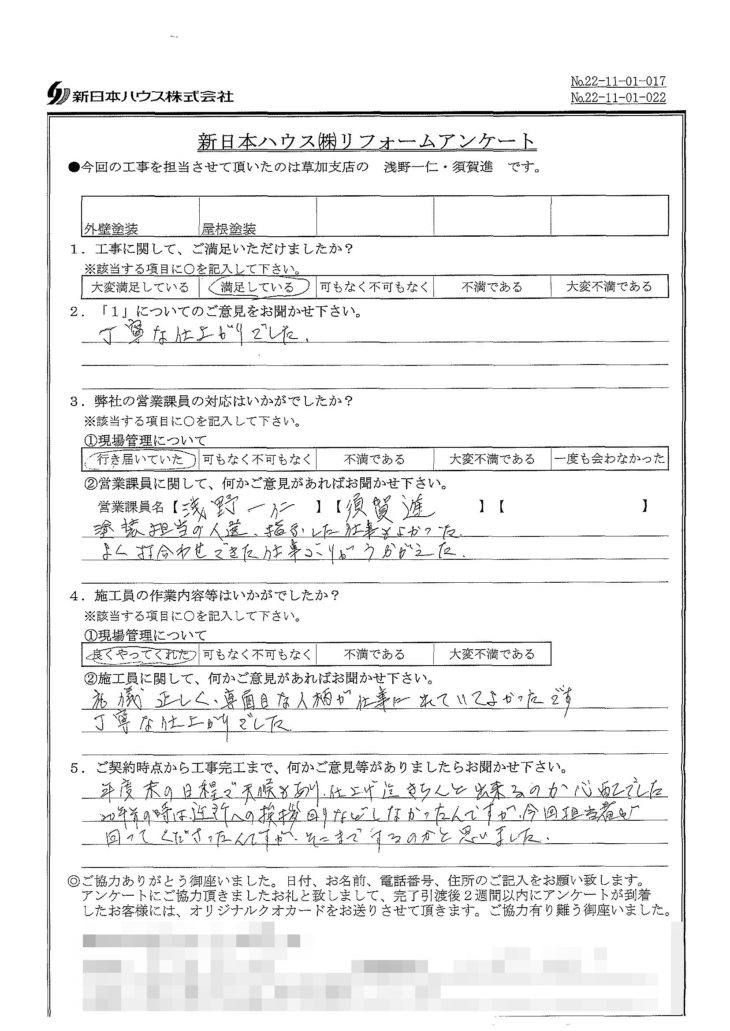 新日本ハウス株式会社
№22-11-01-017
№22-11-01-022
新日本ハウス㈱リフォームアンケート
●今回の工事を担当させて頂いたのは草加支店の 浅野一仁・須賀進 です。
外壁塗装 屋根塗装
1．工事に関して、ご満足いただけましたか？
※該当する項目に○を記入して下さい。
大変満足している 満足している 可もなく不可もなく 不満である 大変不満である
2．「1」についてのご意見をお聞かせ下さい。
丁寧な仕上がりでした．
3．弊社の営業課員の対応はいかがでしたか？
※該当する項目に○を記入して下さい。
①現場管理について
行き届いていた 可もなく不可もなく 不満である 大変不満である 一度も会わなかった
②営業課員に関して、何かご意見があればお聞かせ下さい。
営業課員名【浅野一仁 】【須賀進 】【 】
塗装担当の人選、指示した仕事もよかった．
よく打合わせできた仕事ぶりがうかがえた．
4．施工員の作業内容等はいかがでしたか？
※該当する項目に○を記入して下さい。
①現場管理について
良くやってくれた 可もなく不可もなく 不満である 大変不満である
②施工員に関して、何かご意見があればお聞かせ下さい。
礼儀正しく、真面目な人柄が仕事に出ていてよかったです
丁寧な仕上がりでした
5．ご契約時点から工事完工まで、何かご意見等がありましたらお聞かせ下さい。
年度末の日程で天候もあり、仕上げ迄きちんと出来るのか心配でした
年前の時は近所への挨拶回りなどしなかったんですが、今回担当者が
回ってくださったんですが、そこまでするのかと思いました．
◎ご協力ありがとう御座いました。日付、お名前、電話番号、住所のご記入をお願い致します。
アンケートにご協力頂きましたお礼と致しまして、完了引渡後2週間以内にアンケートが到着
したお客様には、オリジナルクオカードをお送りさせて頂きます。ご協力有り難う御座いました。